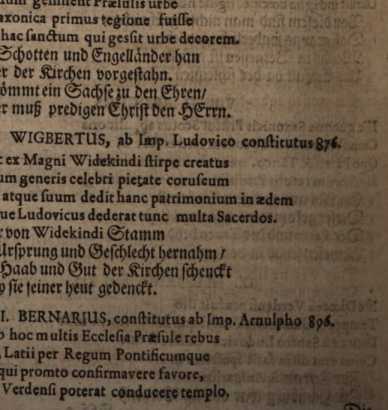 gemment Præsulis urbe
axonica primus regione fuisse
hac sanctum qui gessit urbe decorem.
Schotten und Engelländer han
er der Kirchen vorgestahn.
kömmt ein Sachse zu den Ehren/
er muß predigen Christ den HErrn.
WIGBERTUS, ab Imp. Ludovico constitutus 876.
ex Magni Widekindi stirpe creatus
um generis celebri pietate coruscum
atque suum dedit hanc patrimonium in ædem
ue Ludovicus dederat tunc multa Sacerdos.
r von Widekindi Stamm
Ursprung und Geschlecht hernahm /
Haab und Gut der Kirchen schenckt
sie seiner heut gedenckt.
I. BERNARIUS, constitutus ab Imp. Arnulpho 896.
hoc multis Ecclesia Præsule rebus
, Latii per Regum Pontificumque
qui promto confirmavere favore,
Verdensi poterat conducere templo,